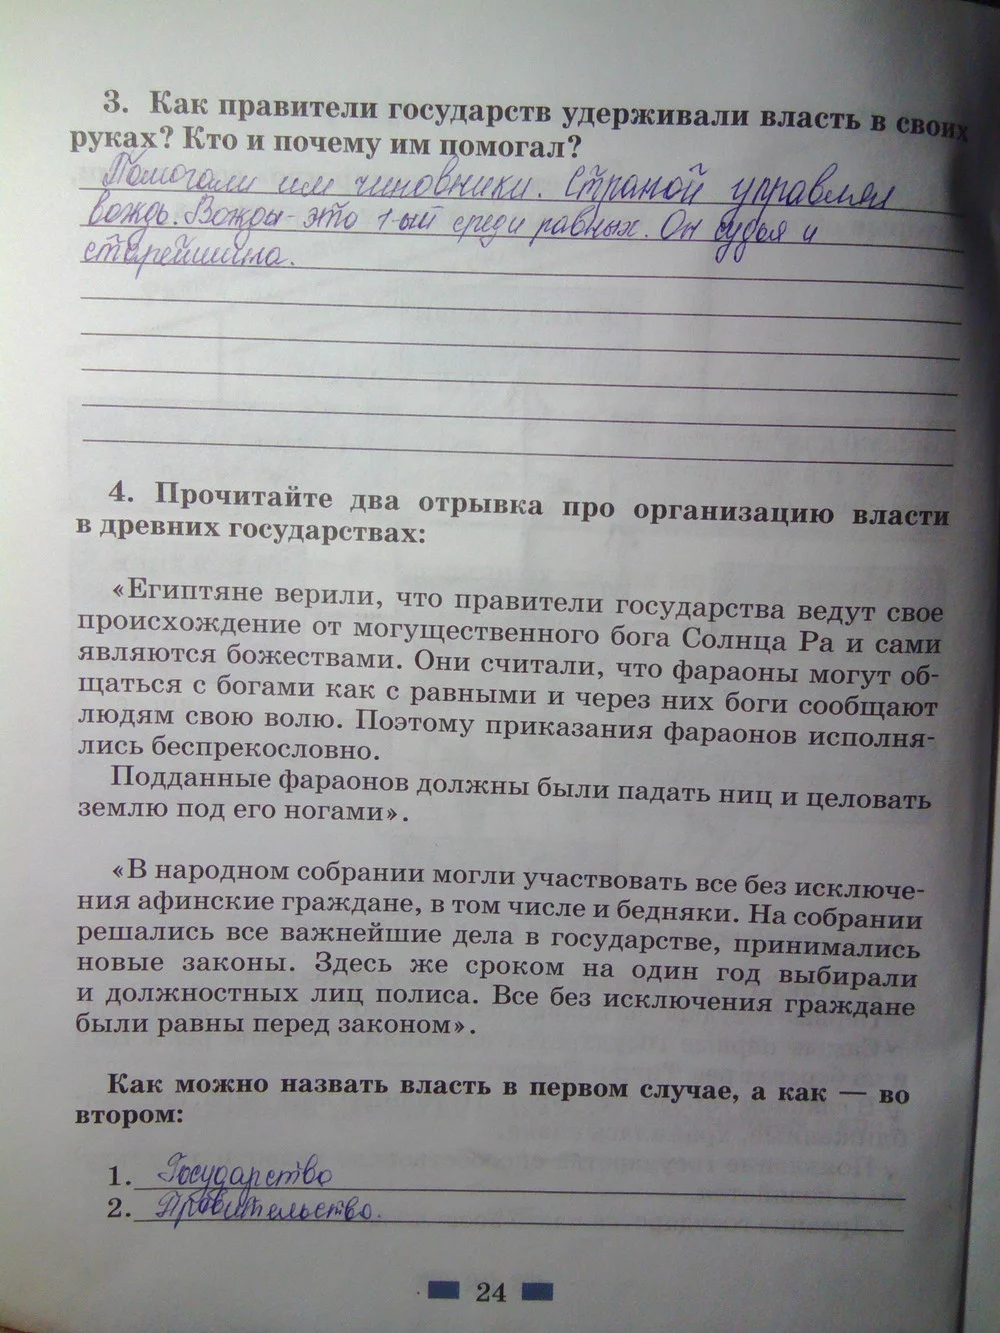 3. Как правители государств удерживали власть в своих
руках? Кто и почему им помогал?
Помогали им чиновники. Страной управлял
вождь. Вождь - это 1-ый среди равных. Он судья и
старейшина.
4. Прочитайте два отрывка про организацию власти
в древних государствах:
«Египтяне верили, что правители государства ведут свое
происхождение от могущественного бога Солнца Ра и сами
являются божествами. Они считали, что фараоны могут об-
щаться с богами как с равными и через них боги сообщают
людям свою волю. Поэтому приказания фараонов исполня-
лись беспрекословно.
Подданные фараонов должны были падать ниц и целовать
землю под его ногами».
«В народном собрании могли участвовать все без исключе-
ния афинские граждане, в том числе и бедняки. На собрании
решались все важнейшие дела в государстве, принимались
новые законы. Здесь же сроком на один год выбирали
и должностных лиц полиса. Все без исключения граждане
были равны перед законом».
Как можно назвать власть в первом случае, а как — во
втором:
1. Государство
2. Правительство.
24